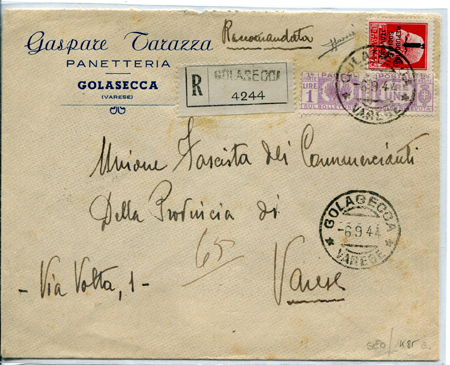 Gaspare Tarazza
PANETTERIA
GOLASECCA
(VARESE)
Raccomandata
R
GOLASECCA
4244
GOLASECCA
-6.9.44
* VARESE *
LIRE 1
Unione Fascista dei Commercianti
Della Provincia di
65
Varese
- Via Volta, 1 -
GOLASECCA
-6.9.44
* VARESE *